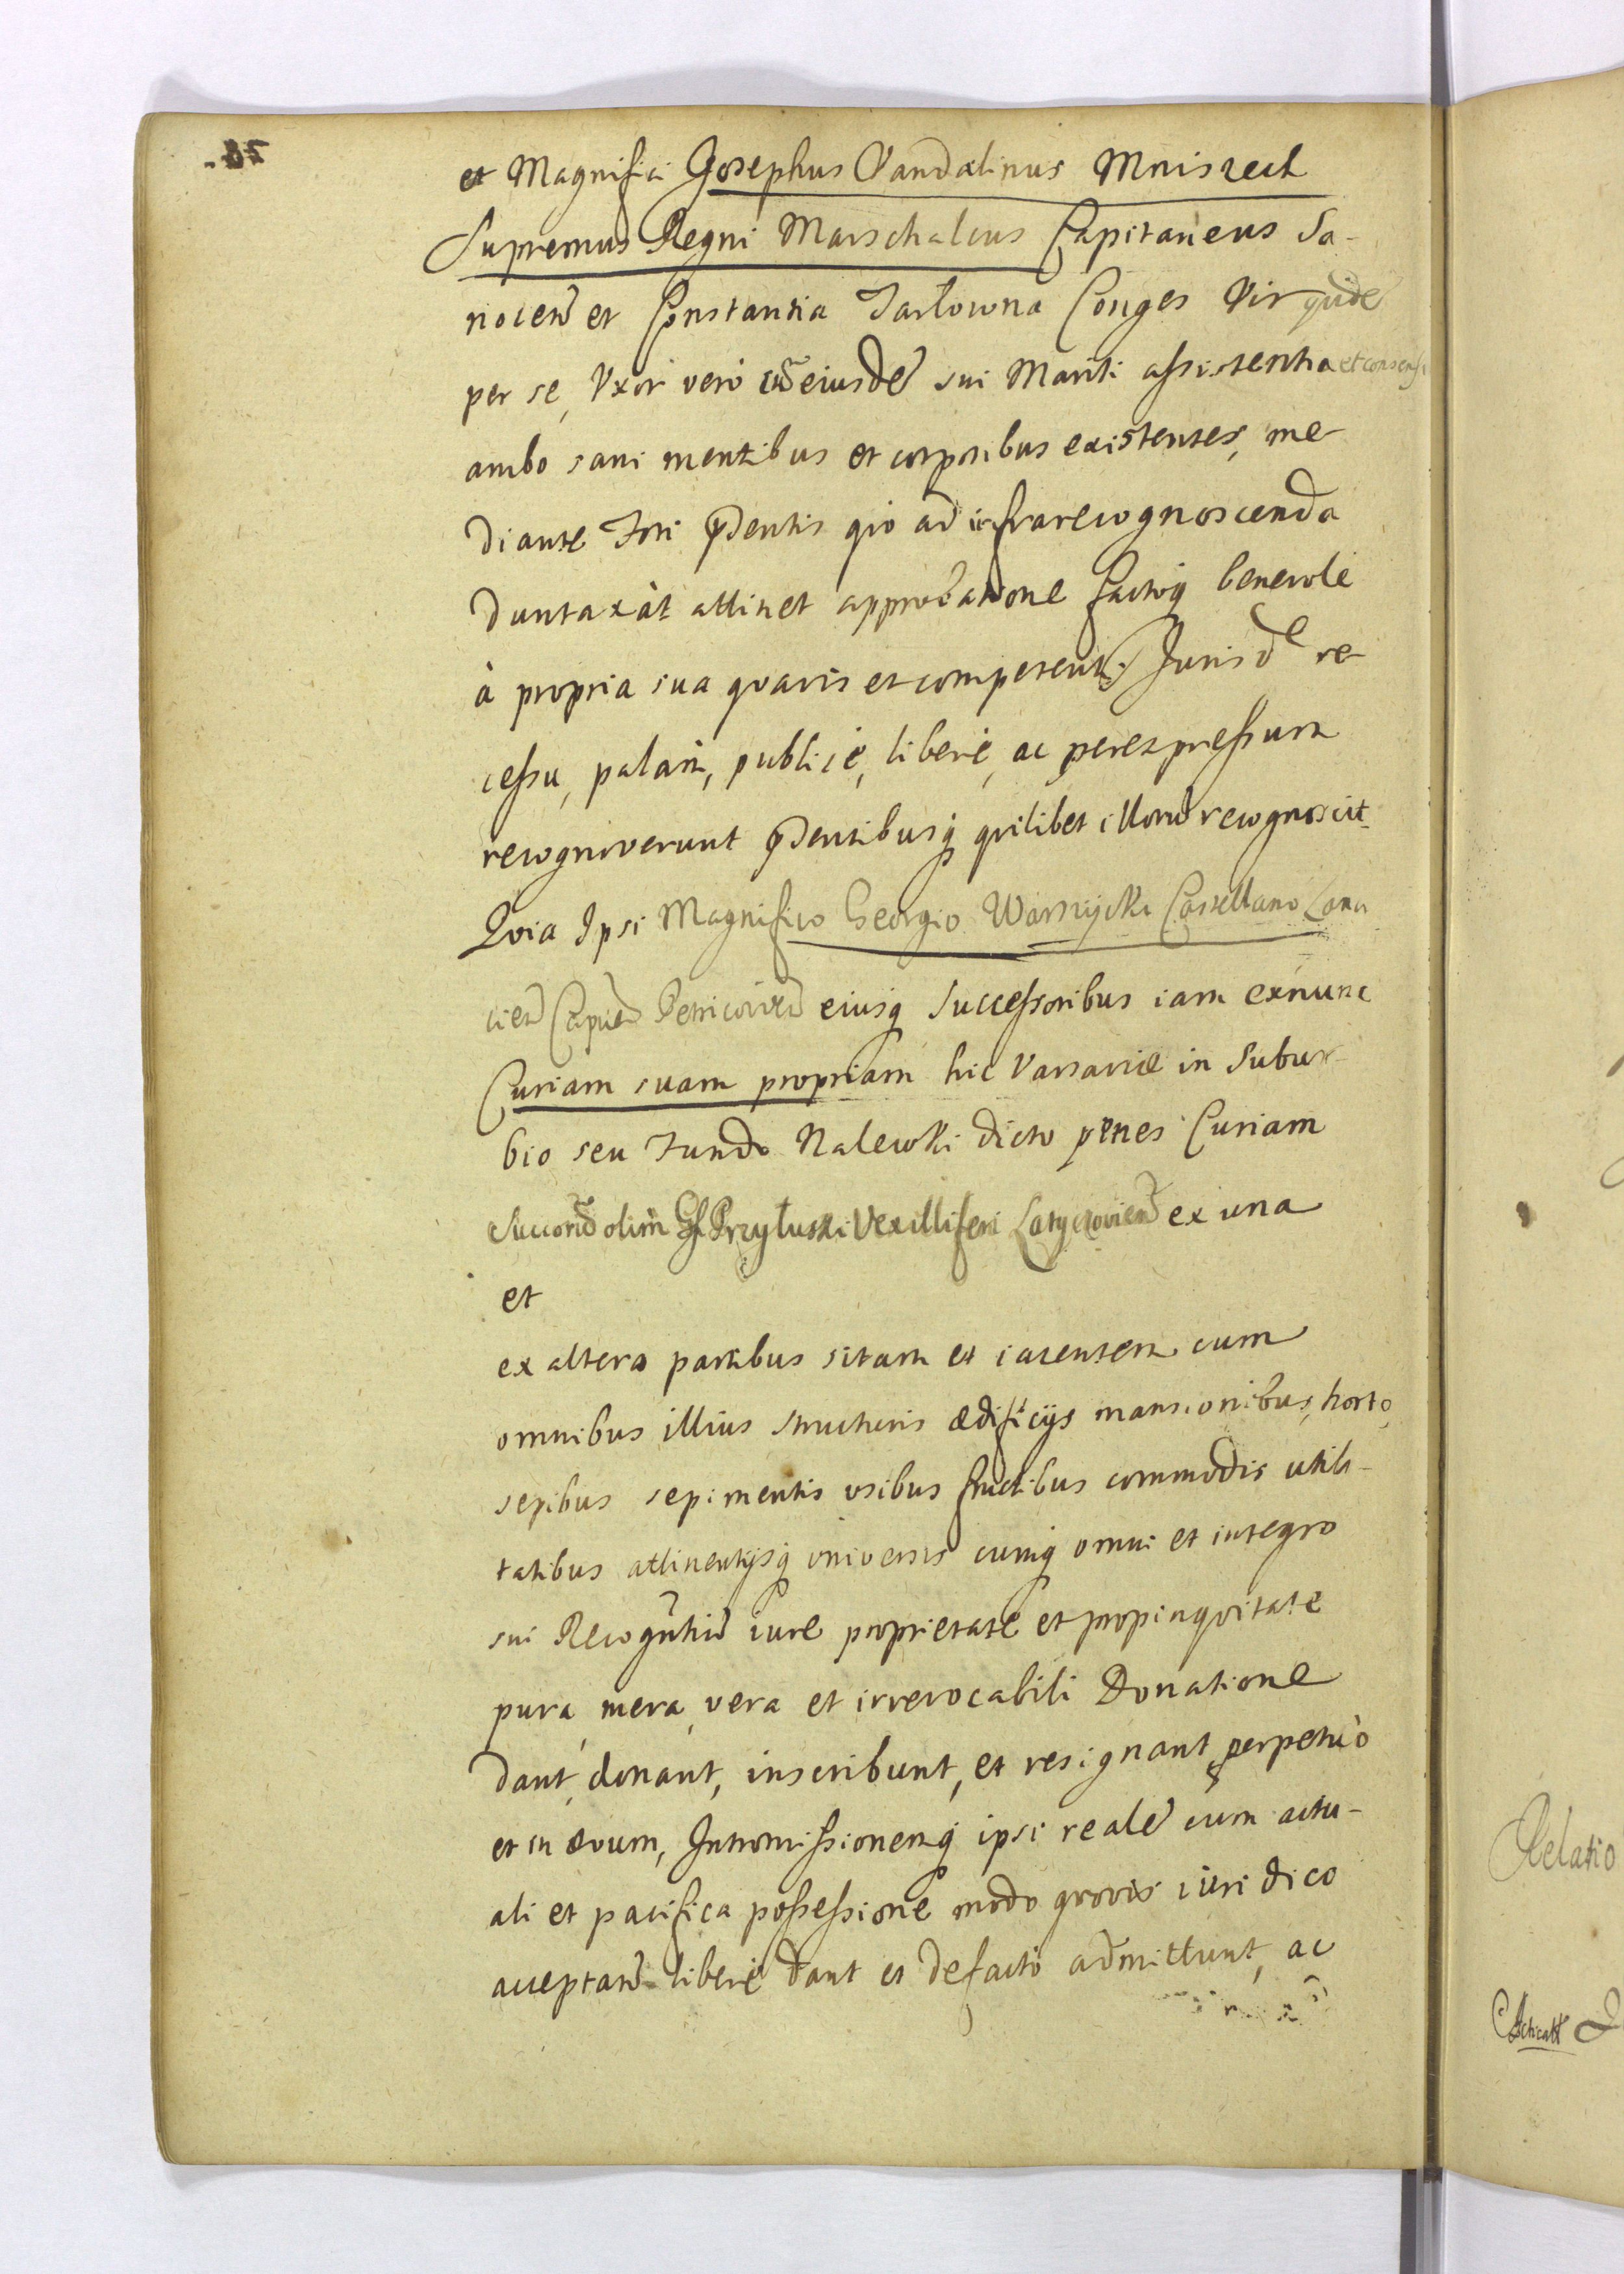 et Magnifici Josephus Vandalinus Mniszech
Supremus Regni Marschalcus Capitaneus Sa-
nocen̄ et Constantia Tarłowna Conges Vir quidē
per se, Vxor verò cū eiusdē sui Mariti assistentia et consensu
ambo sani mentibus et corporibus existentes, me-
diante Fori p̄dentis qio ad infrarecognoscenda
duntaxàt attinet approbatione factoq̨ benevole
à propria sua qvavis et competenti Jurisdē re-
cessu, palàm, publicè, liberè, ac per expressum
recognoverunt p̄dentibusq̨ qvilibet illorū recognoscit
Qvia Ipsi Magnifico Georgio Warszycki Castellano Lanci
cien̄ Capneō Petricovien̄ eiusq̨ Successoribus iam exnunc
Curiam suam propriam hic Varsaviæ in Subur-
bio seu Fundo Nalewki dicto penes Curiam
Succorū olim Gsi Przyłuski Vexilliferi Latyczovien̄ ex una
et
ex altera partibus sitam et iacentem cum
omnibus illius structuris ædificijs mansionibus, horto,
sepibus sepimentis usibus fructibus commodis utili-
tatibus attinentijsq̨ universis cumq̨ omni et integro
sui Recogn̄tiū iure proprietate et propinqvitate
pura, mera, vera et irrevocabili Donatione
dant, donant, inscribunt, et resignant perpetuò
et in ævum, Intromissionemq̨ ipsi realē cum actu-
ali et pacifica possessione modo qvovis iuridico
acceptan̄ liberè dant et defacto admittunt, ac
Relatio
Acticatt